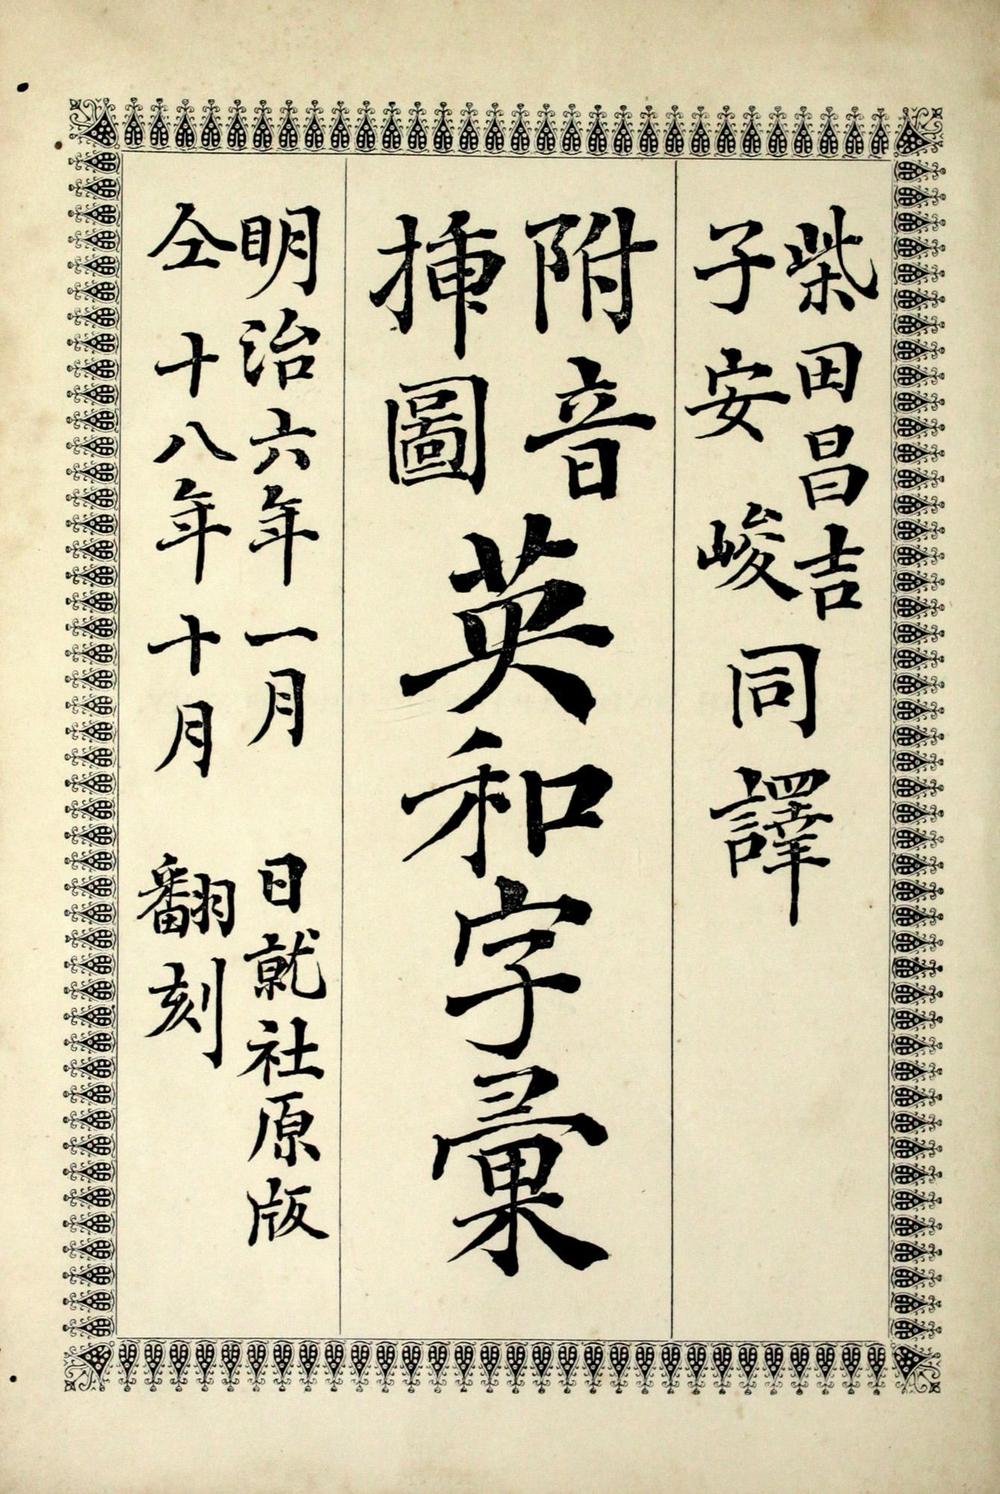 柴田昌吉
子安峻
同譯
附音
挿圖
英和字彙
明治六年一月 日就社原版
仝十八年十月 翻刻